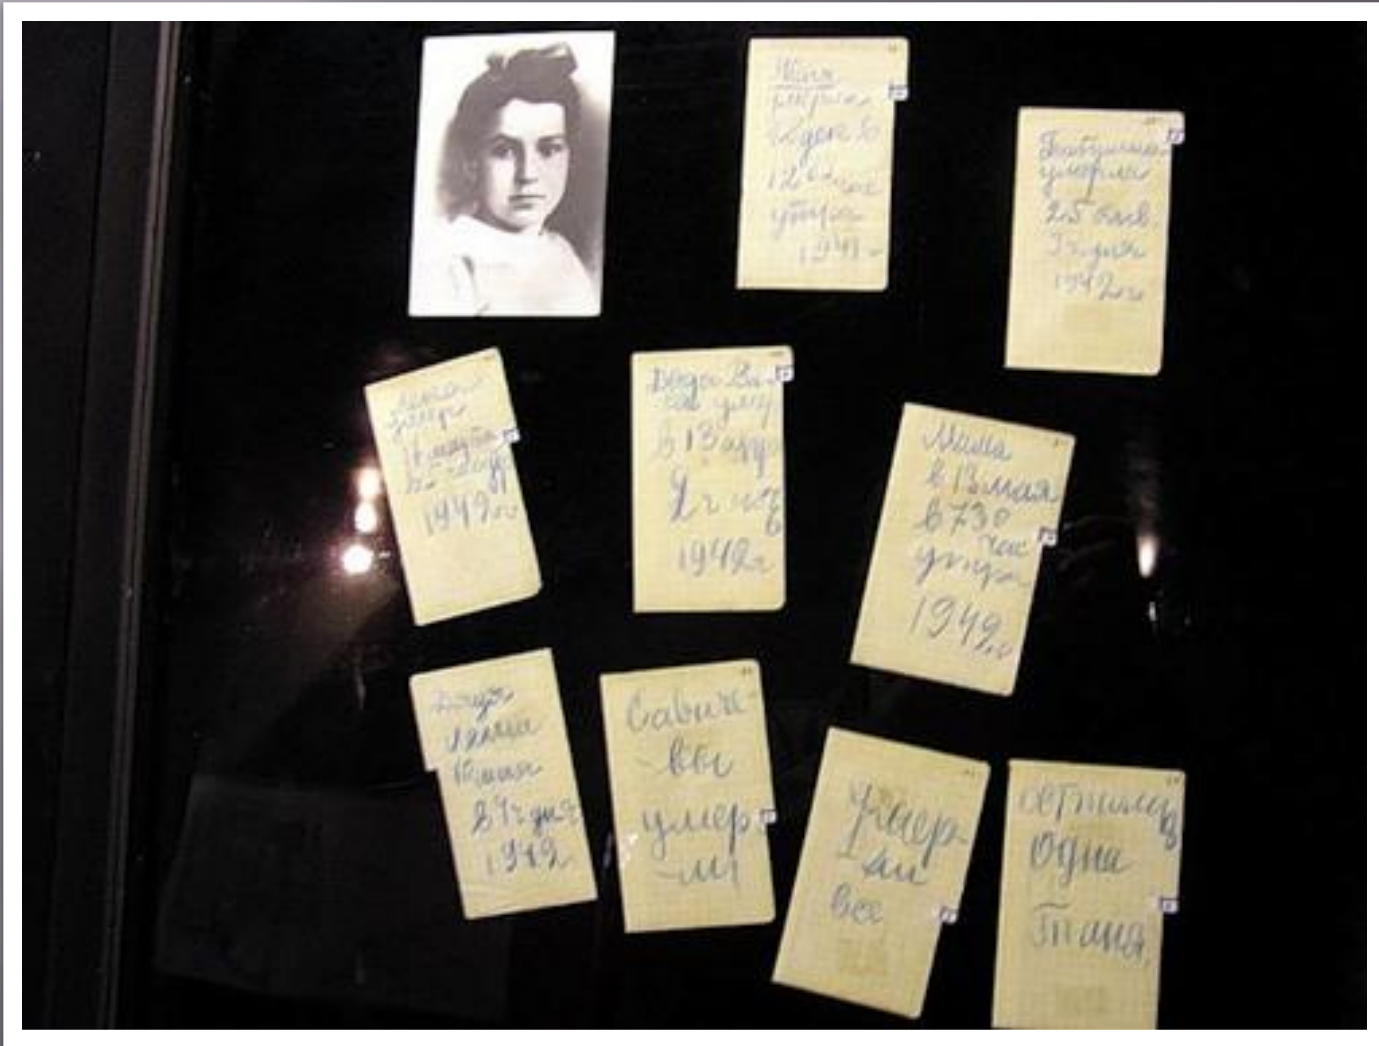 Женя
умерла
28 дек в
12 00 час
утра
1941 г
Бабушка
умерла
25 янв.
3 ч. дня
1942 г.
Лека
умер
17 марта
1942 г
Дядя Ва
ся умер
в 13 апр
2 ч ночь
1942 г
Мама
в 13 мая
в 7 30
час
утра
1942 г
Дядя
Леша
10 мая
в 4 ч дня
1942
Савиче-
-вы
умер-
-ли
Умер-
ли
все
осталась
одна
Таня.